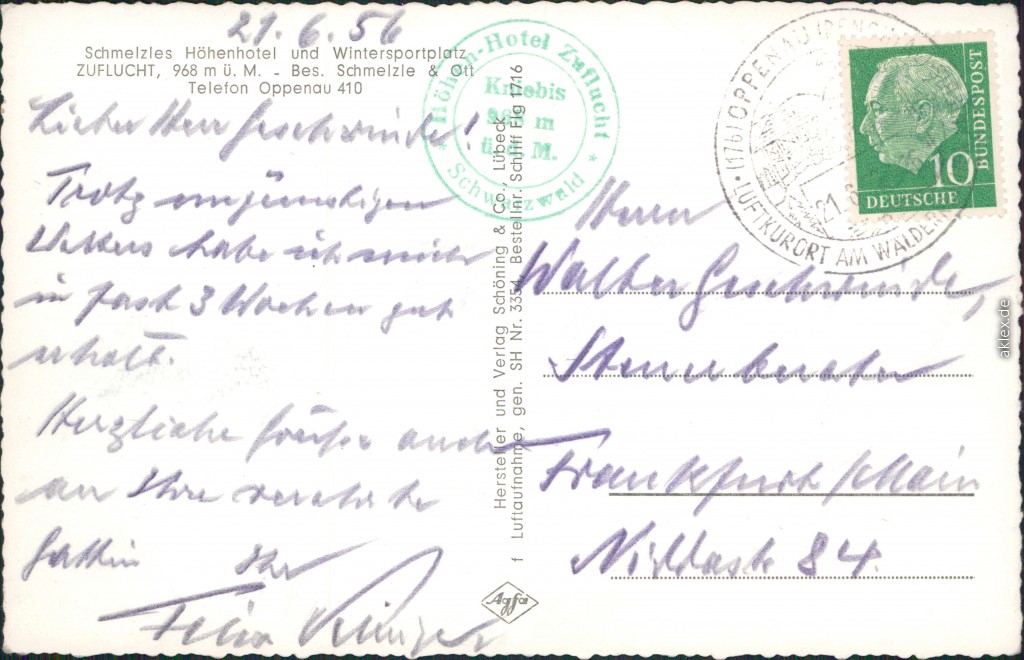 21.6.56
Schmelzles Höhenhotel und Wintersportplatz
ZUFLUCHT, 968 m ü. M. - Bes. Schmelzle & Ott
Telefon Oppenau 410
Lieber Herr Geschwinde!
Trotz ungünstigen
Wetters habe ich mich
in fast 3 Wochen gut
erholt.
Herzliche Grüße auch
an Ihre verehrte
Gattin Ihr
Felix
Höhen-Hotel Zuflucht
Kniebis
968 m
ü. d. M.
* Schwarzwald *
Hersteller und Verlag Schöning & Co., Lübeck
f Luftaufnahme, gen. SH Nr. 3354, Bestellnr. Schiff Flg 1716
Agfa
(17b) OPPENAU (RENCHTAL
LUFTKURORT AM WALDE
21.
BUNDESPOST
10
DEUTSCHE
Herrn
Walter Geschwinde,
Steuerberater
Frankfurt/Main
84.
aklex.de